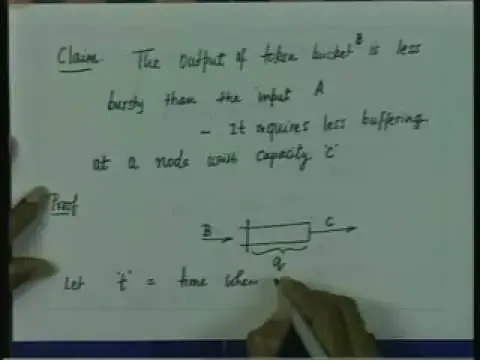 Claim The output of token bucket B is less
bursty than the input A
- It requires less buffering
at a node with capacity 'C'
Proof
B C
q
Let 't' = time when